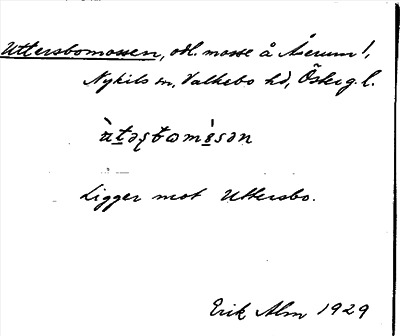 Uttersbomossen, odl. mosse å Åserum 1,
Nykils sn, Valkebo hd, Österg.l.
Ligger mot Uttersbo.
Erik Alm 1929